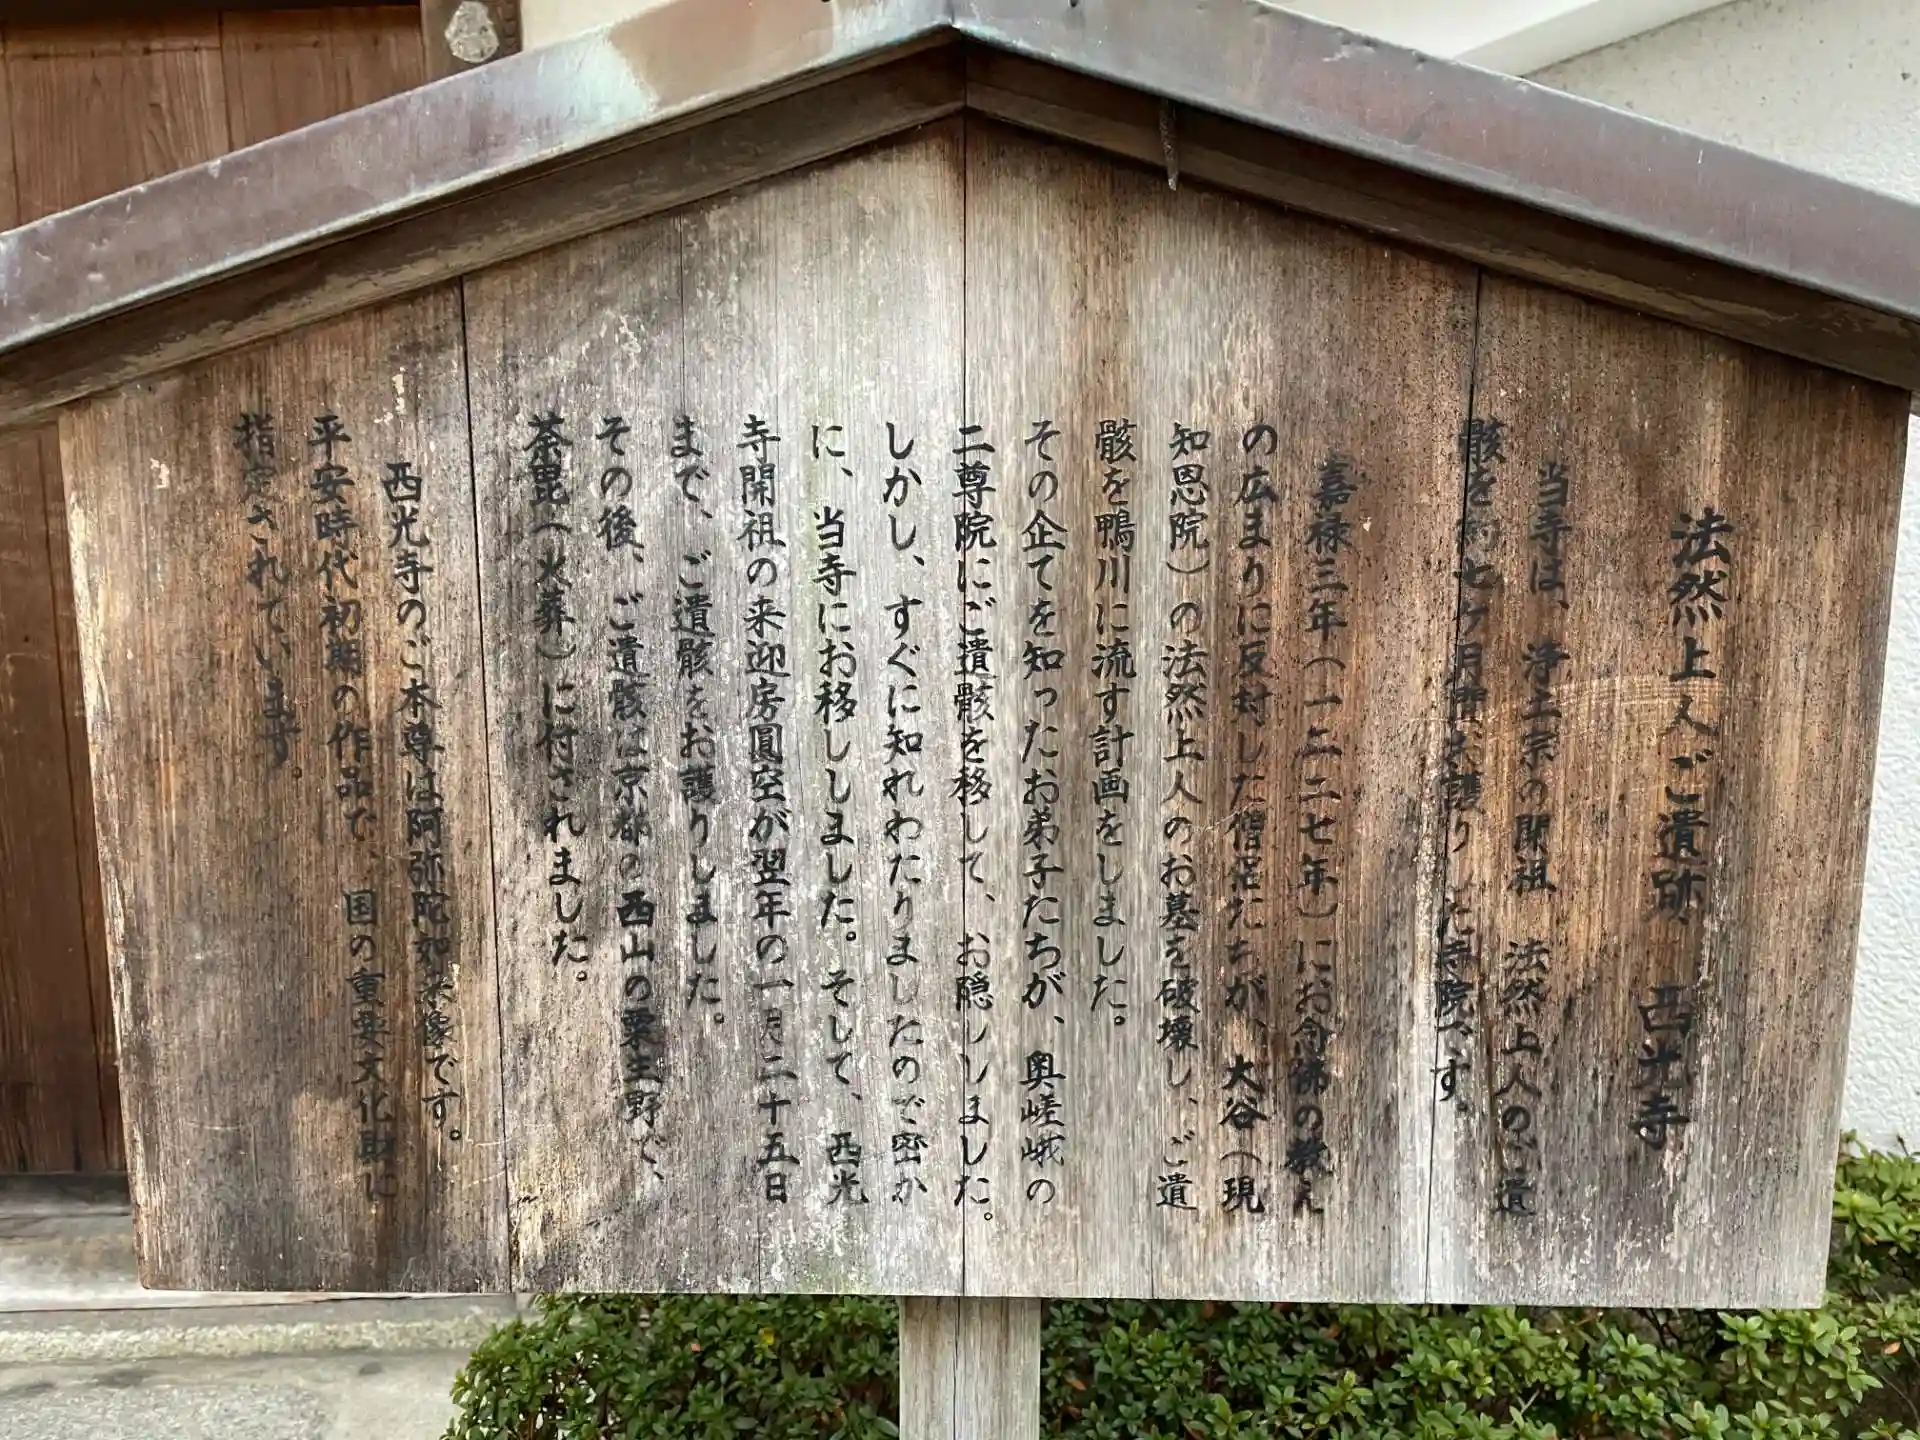 法然上人ご遺跡 西光寺
当寺は、浄土宗の開祖 法然上人のご遺
骸を約七ヶ月間お護りした寺院です。
嘉禄三年(一二二七年)にお念佛の教え
の広まりに反対した僧侶たちが、大谷(現
知恩院)の法然上人のお墓を破壊し、ご遺
骸を鴨川に流す計画をしました。
その企てを知ったお弟子たちが、奥嵯峨の
二尊院にご遺骸を移して、お隠ししました。
しかし、すぐに知れわたりましたので密か
に、当寺にお移ししました。そして、西光
寺開祖の来迎房圓空が翌年の一月二十五日
まで、ご遺骸をお護りしました。
その後、ご遺骸は京都の西山の粟生野で、
荼毘(火葬)に付されました。
西光寺のご本尊は阿弥陀如来像です。
平安時代初期の作品で、国の重要文化財に
指定されています。